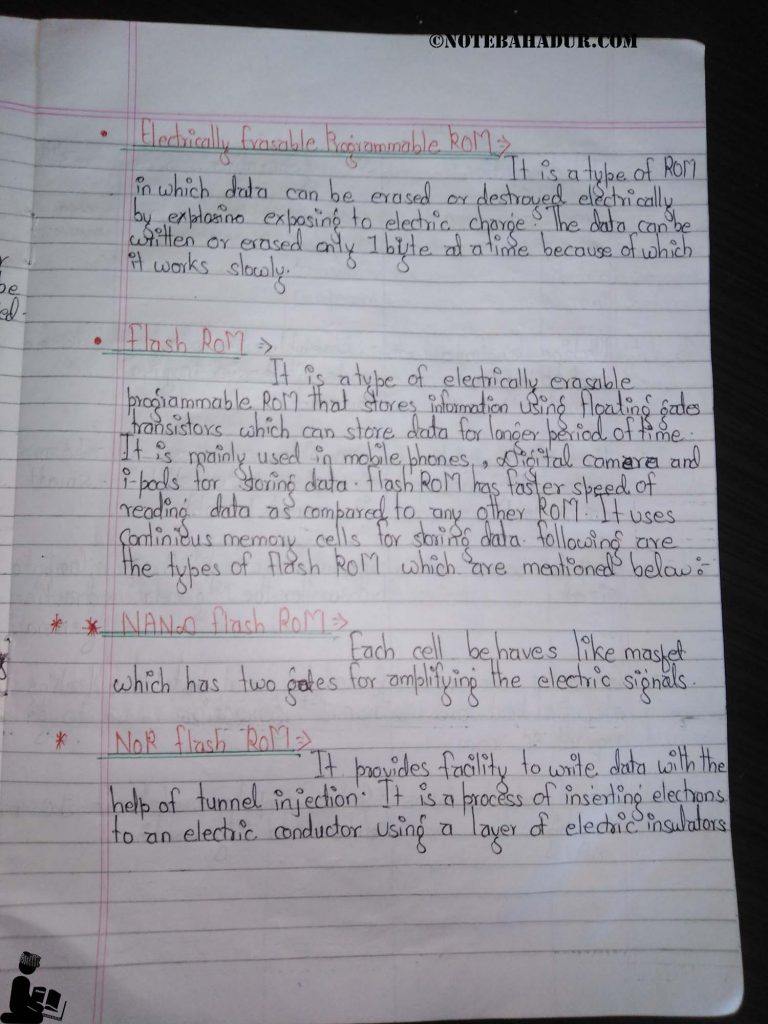 ©NOTEBAHADUR.COM
• Electrically Erasable Programmable ROM ⇒
It is a type of ROM
in which data can be erased or destroyed electrically
by exposing to electric charge. The data can be
written or erased only 1 byte at a time because of which
it works slowly.
be
ed.
• Flash ROM ⇒
It is a type of electrically erasable
programmable ROM that stores information using floating gates
transistors which can store data for longer period of time.
It is mainly used in mobile phones, Digital camera and
i-pods for storing data. Flash ROM has faster speed of
reading data as compared to any other ROM. It uses
continious memory cells for storing data. Following are
the types of flash ROM which are mentioned below:-
* * NAND flash ROM ⇒
Each cell behaves like masfet
which has two gates for amplifying the electric signals.
* NOR flash ROM ⇒
It provides facility to write data with the
help of tunnel injection. It is a process of inserting electrons
to an electric conductor using a layer of electric insulators